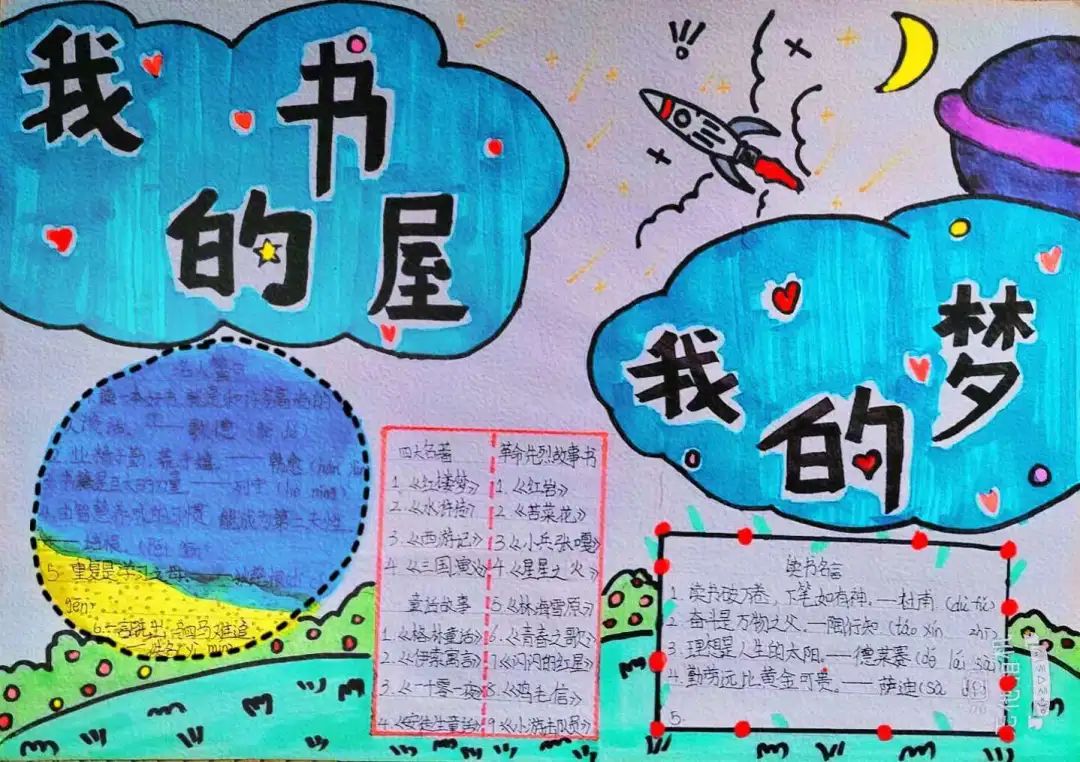 我的书屋
我的梦
名人警句
读一本好书,就是和许多高尚的
人谈话。——歌德
2.业精于勤,荒于嬉。——韩愈(hán
书籍是巨大的力量。——列宁(liè níng)
习惯 能成为第二天性
——培根。(péi
5.重复是学习之母。——狄慈根
gēn)
6.一言既出,驷马难追
四大名著
1.《红楼梦》
2.《水浒传》
3.《西游记》
4.《三国演义》
童话故事
1.《格林童话》
2.《伊索寓言》
3.《一千零一夜》
4.《安徒生童话》
革命先烈故事书
1.《红岩》
2.《苦菜花》
3.《小兵张嘎》
4.《星星之火》
5.《林海雪原》
6.《青春之歌》
7.《闪闪的红星》
8.《鸡毛信》
9.《小游击队员》
读书名言
1.读书破万卷,下笔如有神。——杜甫(dù fǔ)
2.奋斗是万物之父。——陶行知(táo xín zhī)
3.理想是人生的太阳。——德莱塞(dé lái sài)
4.勤劳远比黄金可贵。——萨迪(sà dí)
5.